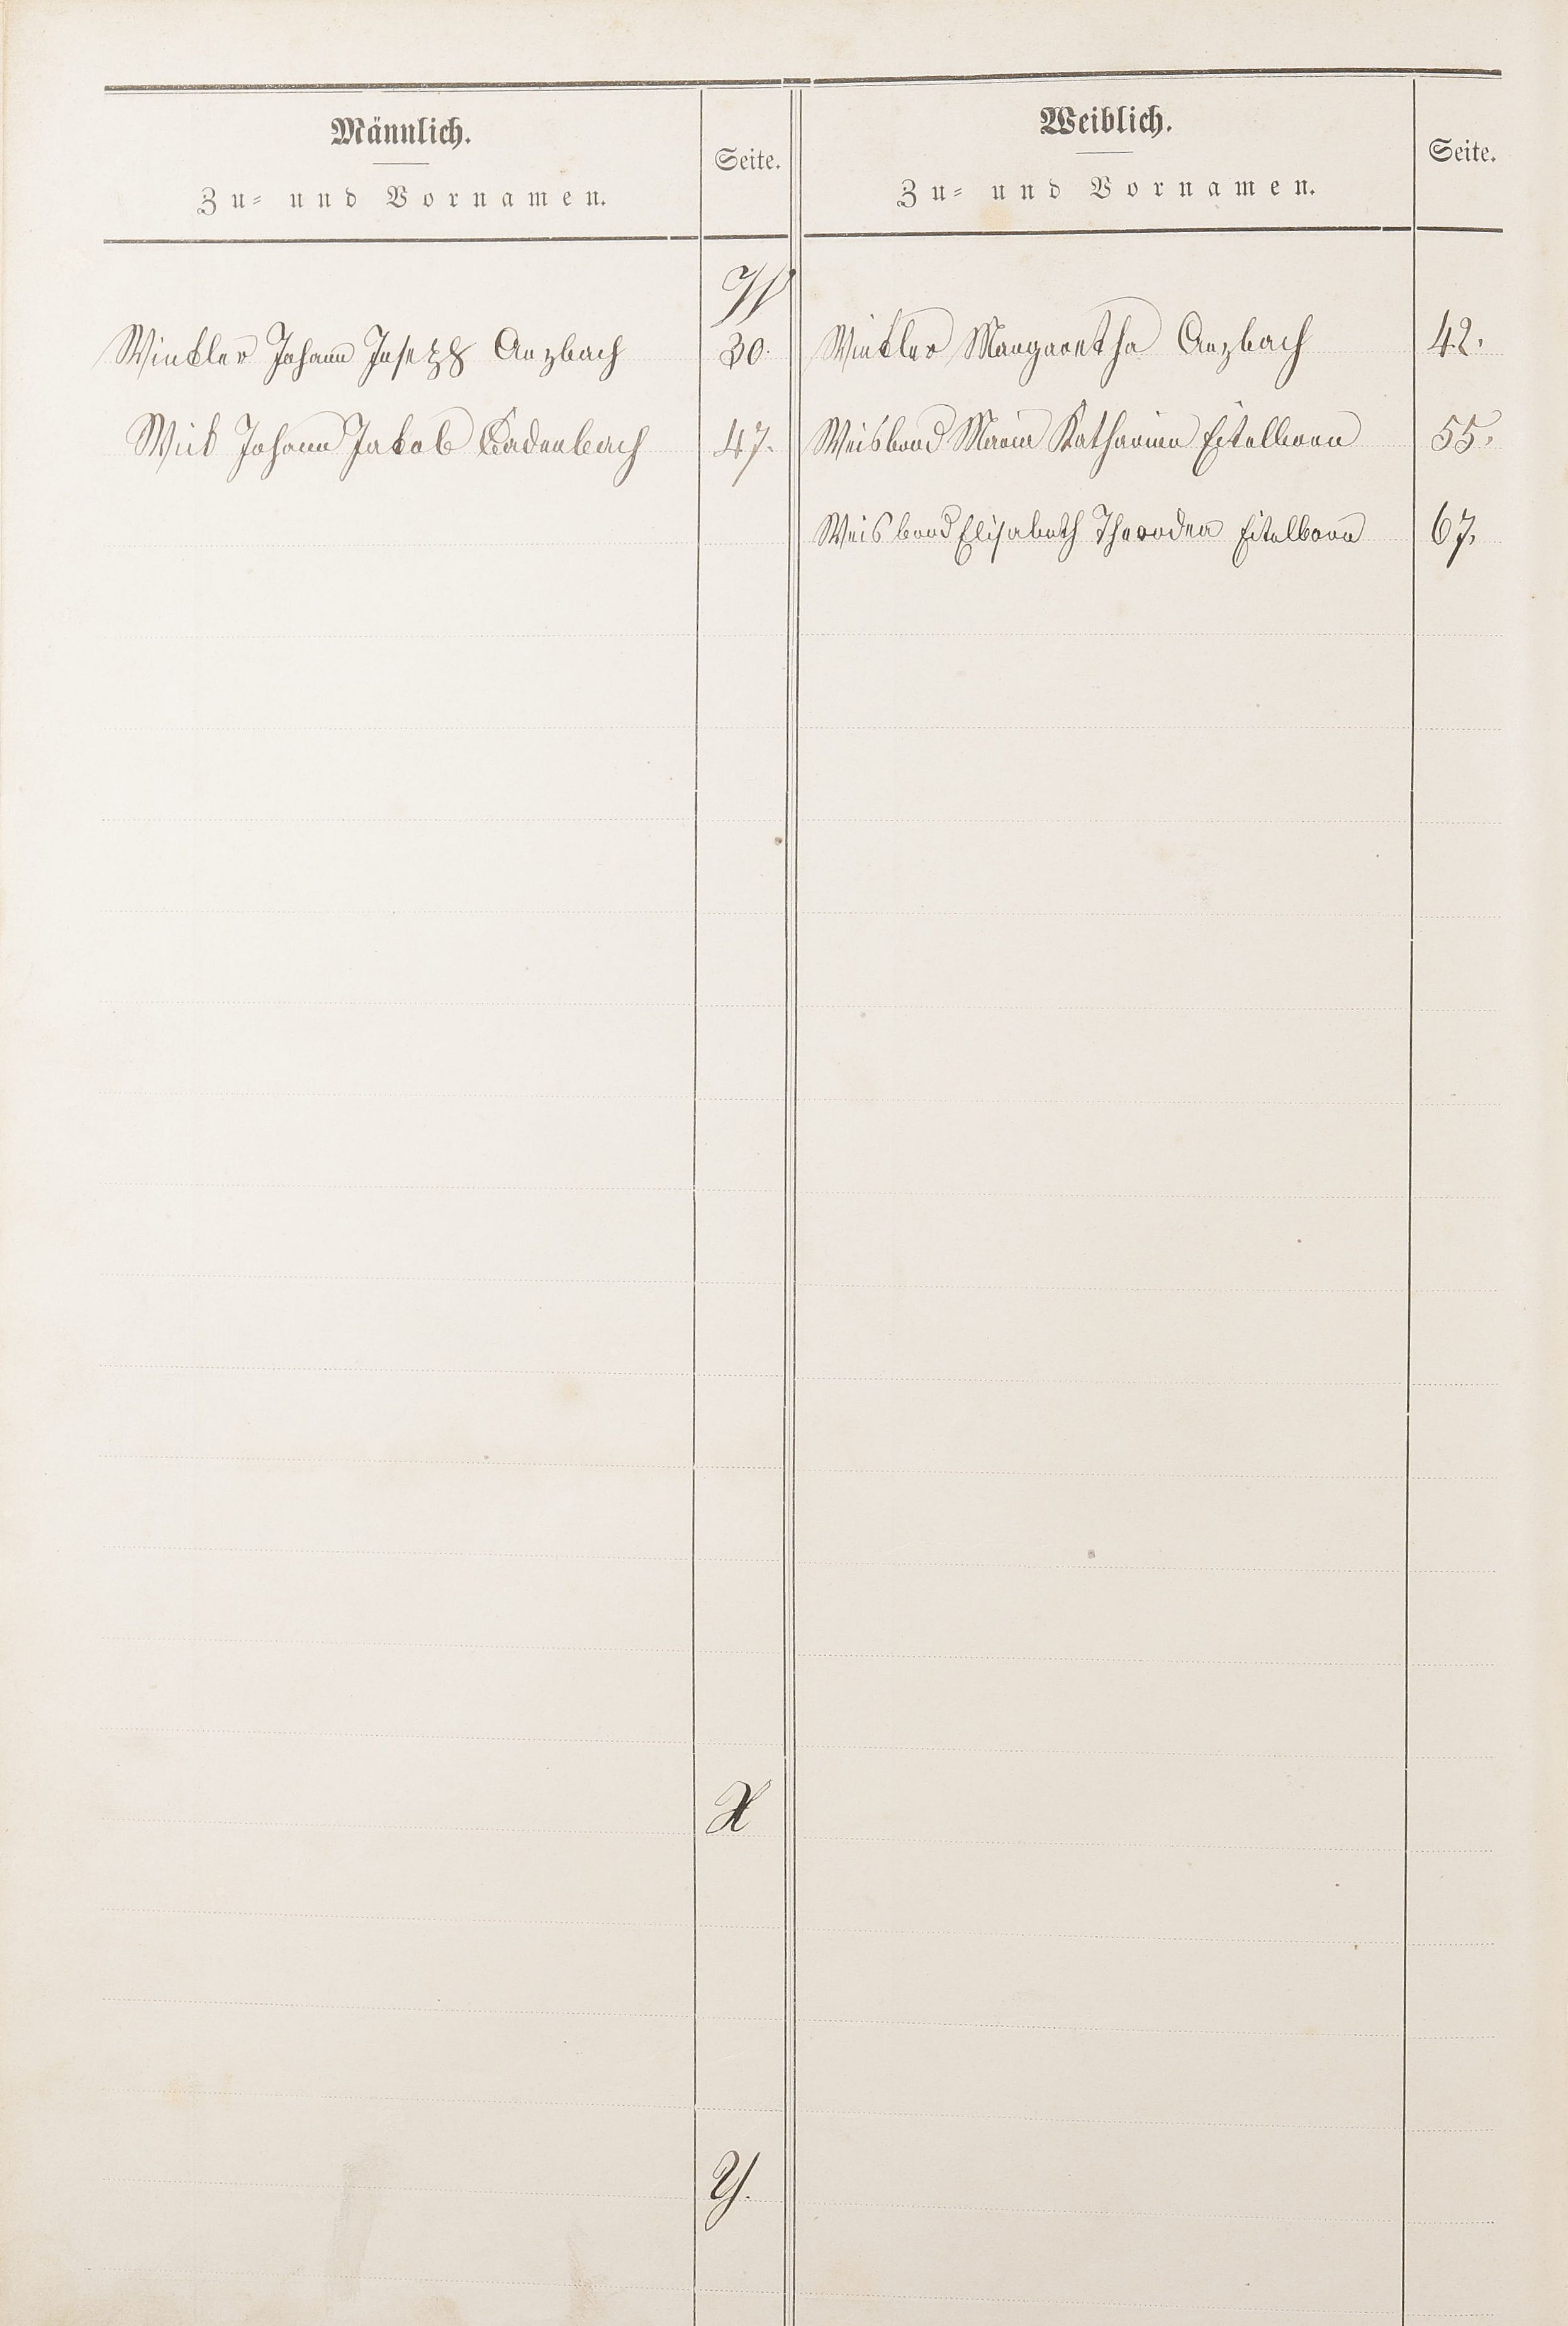 Männlich.
Zu- und Vornamen.
Seite.
Weiblich.
Zu- und Vornamen.
Seite.
W
Winkler Johann Joseph Arzbach 30.
Winkler Margaretha Arzbach 42.
Johann Jakob Cadenbach 47.
Weisbrod Maria Katharina Eitelborn 55.
Weisbrod Elisabeth Theodora Eitelborn 67.
X
Y.